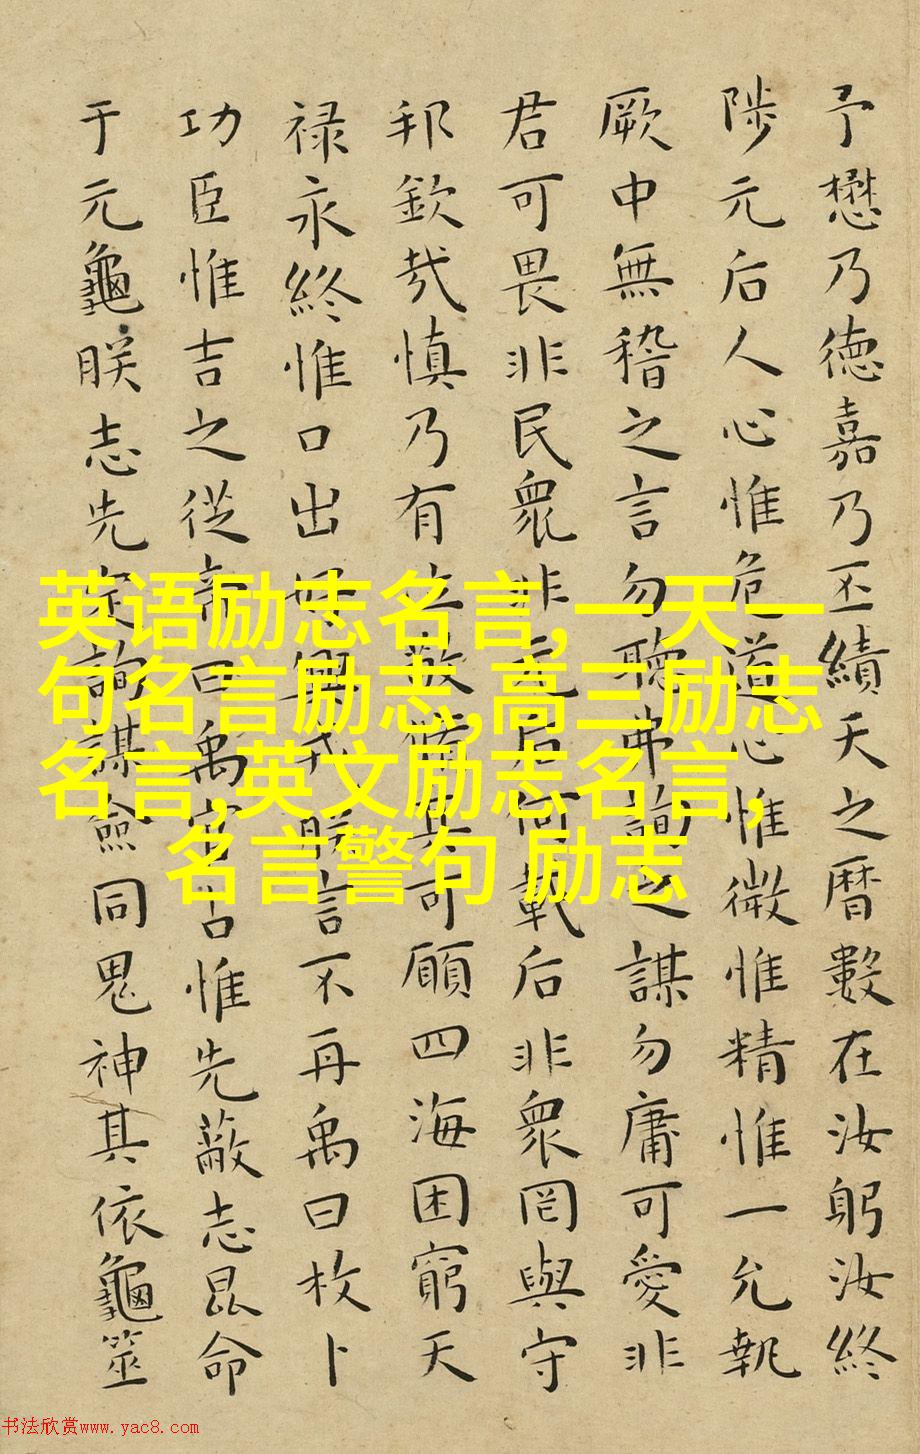 予懋乃德嘉乃丕績天之曆數在汝躬汝終
陟元后人心惟危道心惟微惟精惟一允執
厥中無稽之言勿聽弗詢之謀勿庸可愛非
君可畏非民衆非元后何戴后非衆罔與守
邦欽哉慎乃有位敬脩其可願四海困窮天
禄永終惟口出好興戎朕言不再禹曰枚卜
功臣惟吉之從帝曰禹官占惟先蔽志昆命
于元龜朕志先定詢謀僉同鬼神其依龜筮
英语励志名言,一天一
句名言励志,高三励志
名言,英文励志名言,
名言警句 励志
书法欣赏www.yac8.com